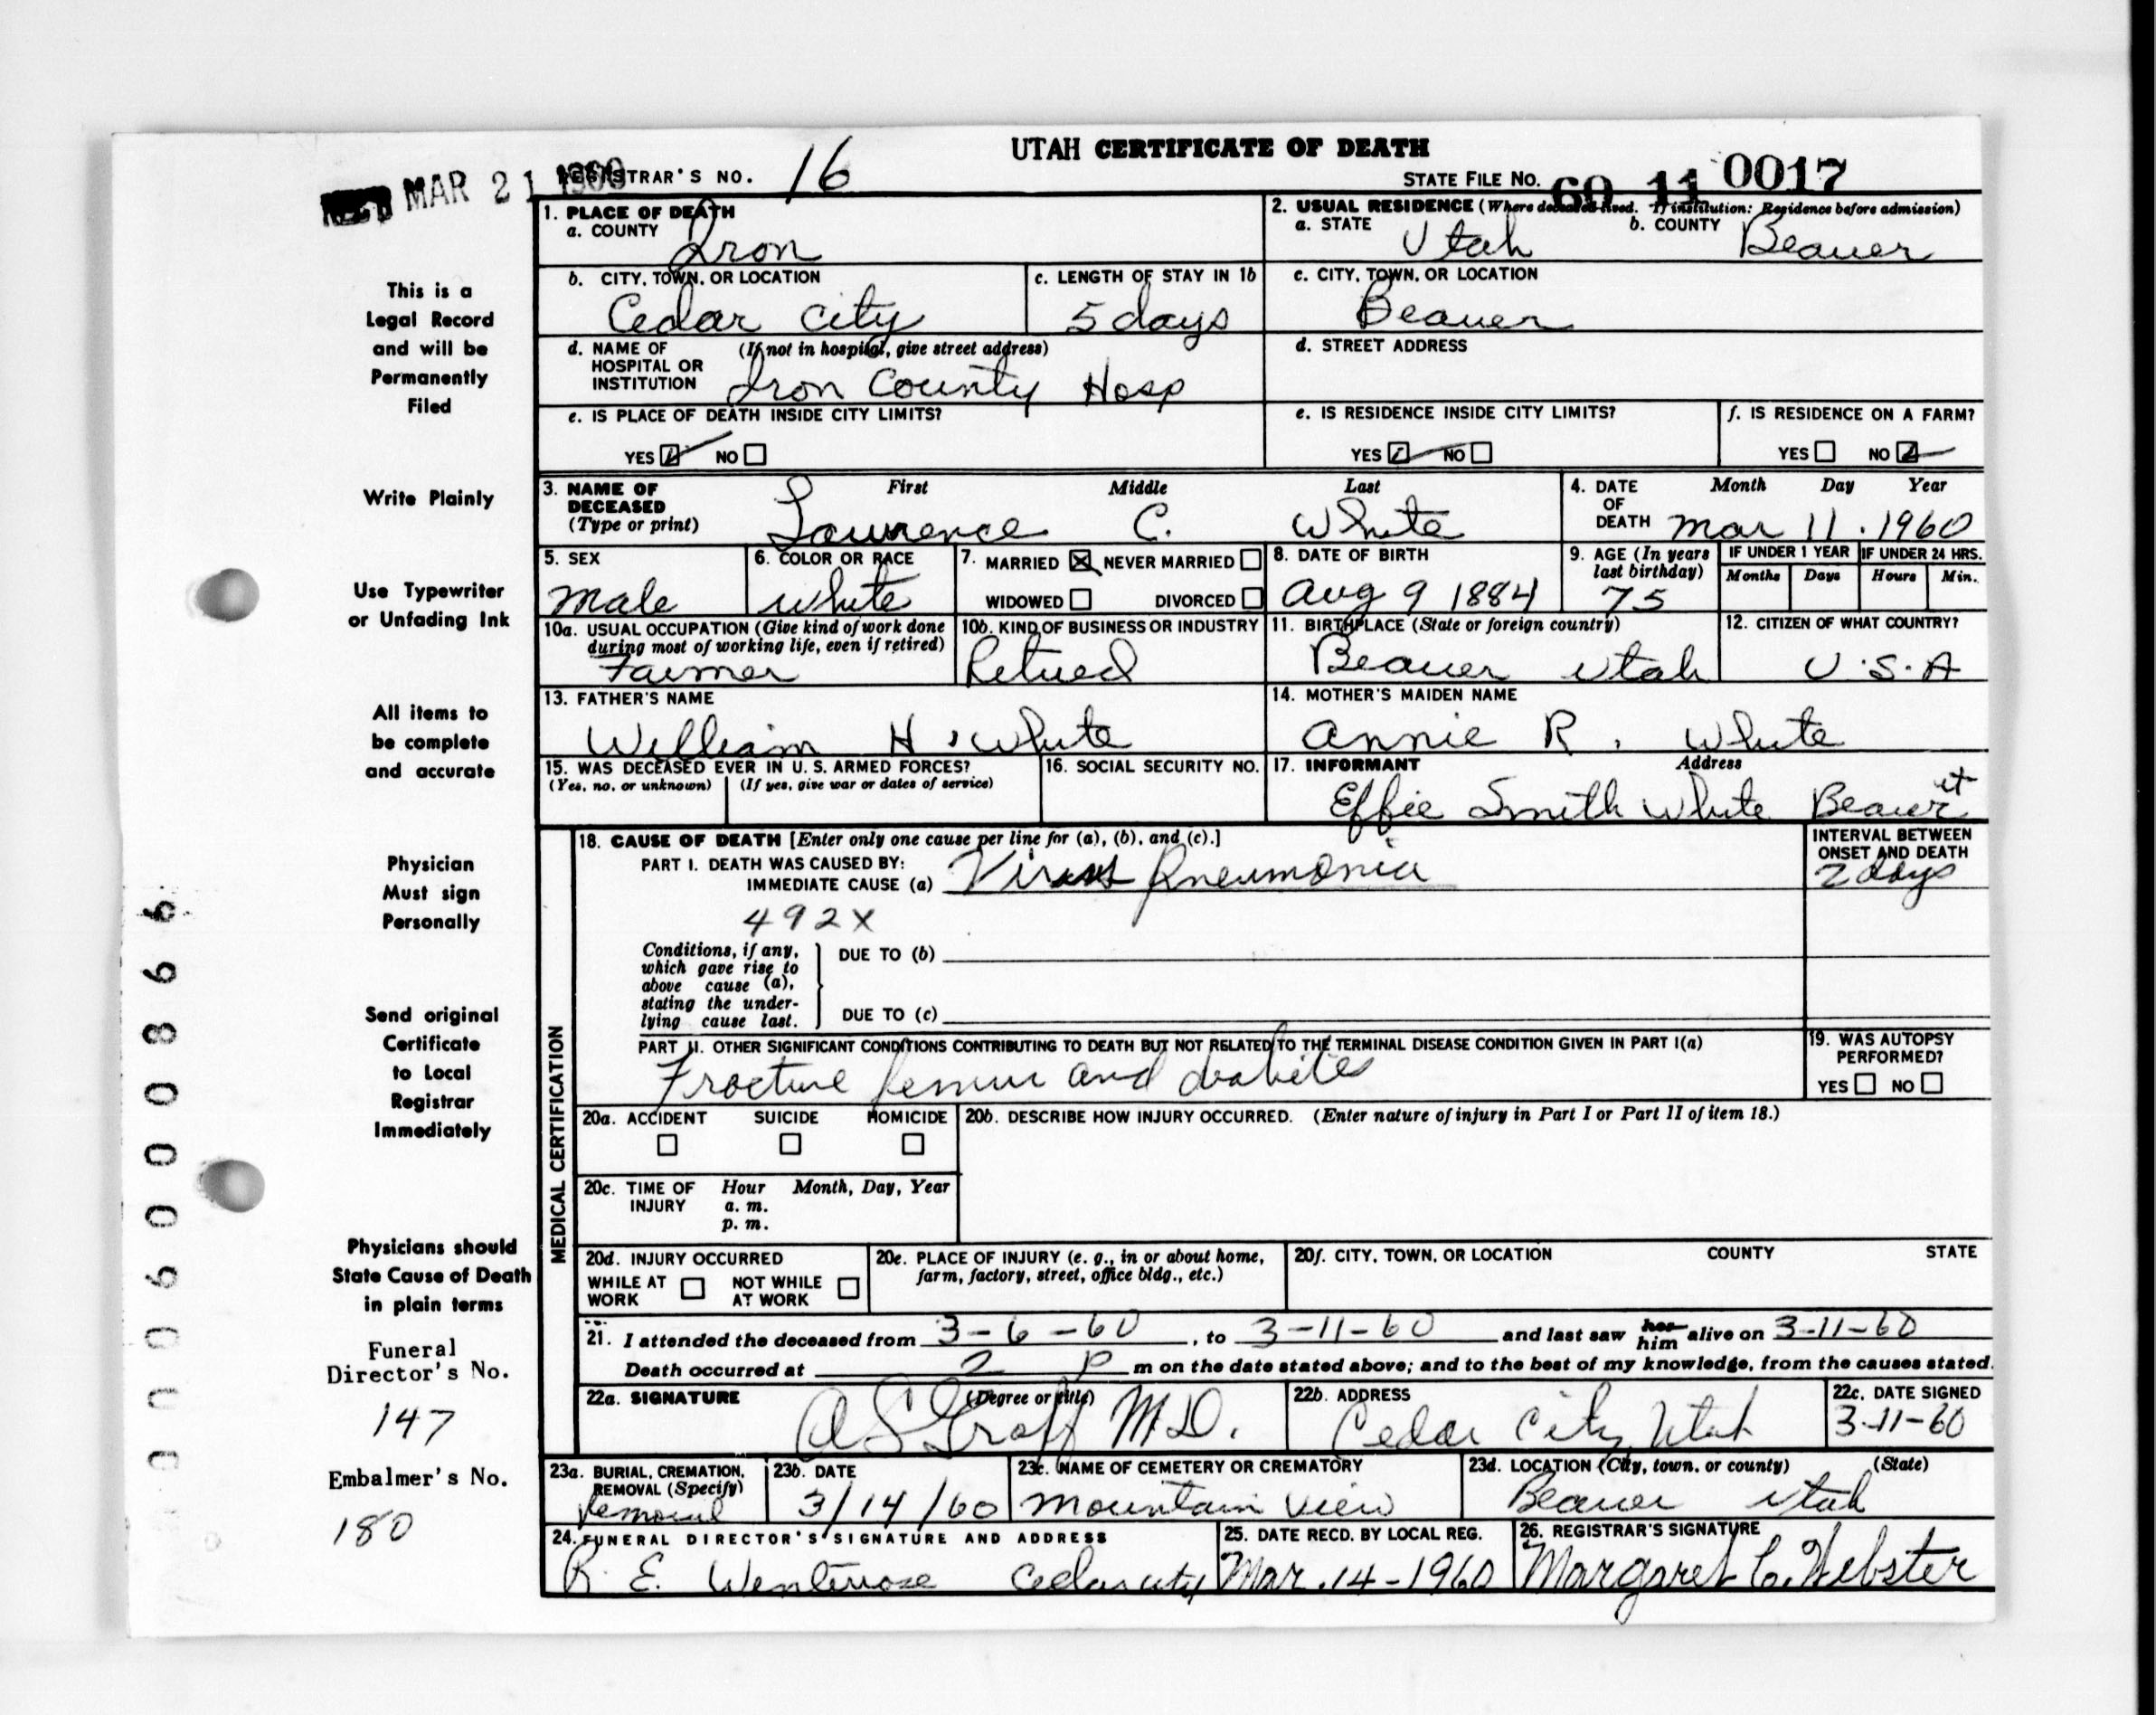 UTAH CERTIFICATE OF DEATH
MAR 21 1960
REGISTRAR'S NO. 16
STATE FILE NO. 60 11 0017
1. PLACE OF DEATH
a. COUNTY Iron
2. USUAL RESIDENCE (Where deceased lived. If institution: Residence before admission)
a. STATE Utah b. COUNTY Beaver
b. CITY, TOWN, OR LOCATION Cedar City
c. LENGTH OF STAY IN 1b 5 days
c. CITY, TOWN, OR LOCATION Beaver
d. NAME OF HOSPITAL OR INSTITUTION (If not in hospital, give street address) Iron County Hosp
d. STREET ADDRESS
e. IS PLACE OF DEATH INSIDE CITY LIMITS?
YES NO
e. IS RESIDENCE INSIDE CITY LIMITS?
YES NO
f. IS RESIDENCE ON A FARM?
YES NO
3. NAME OF DECEASED (Type or print)
First Middle Last
Lawrence C. White
4. DATE OF DEATH Month Day Year
Mar 11. 1960
5. SEX male
6. COLOR OR RACE white
7. MARRIED NEVER MARRIED
WIDOWED DIVORCED
8. DATE OF BIRTH Aug 9 1884
9. AGE (In years last birthday) 75
IF UNDER 1 YEAR Months Days
IF UNDER 24 HRS. Hours Min.
10a. USUAL OCCUPATION (Give kind of work done during most of working life, even if retired) Farmer
10b. KIND OF BUSINESS OR INDUSTRY Retired
11. BIRTHPLACE (State or foreign country) Beaver Utah
12. CITIZEN OF WHAT COUNTRY? U.S.A
13. FATHER'S NAME William H. White
14. MOTHER'S MAIDEN NAME Annie R. White
15. WAS DECEASED EVER IN U. S. ARMED FORCES?
(Yes, no, or unknown) (If yes, give war or dates of service)
16. SOCIAL SECURITY NO.
17. INFORMANT Address
Effie Smith White Beaver ut
MEDICAL CERTIFICATION
18. CAUSE OF DEATH [Enter only one cause per line for (a), (b), and (c).]
PART I. DEATH WAS CAUSED BY:
IMMEDIATE CAUSE (a) Virus Pneumonia
INTERVAL BETWEEN ONSET AND DEATH
2 days
492X
Conditions, if any, which gave rise to above cause (a), stating the underlying cause last.
DUE TO (b)
DUE TO (c)
PART II. OTHER SIGNIFICANT CONDITIONS CONTRIBUTING TO DEATH BUT NOT RELATED TO THE TERMINAL DISEASE CONDITION GIVEN IN PART I(a)
Fracture femur and diabites
19. WAS AUTOPSY PERFORMED?
YES NO
20a. ACCIDENT SUICIDE HOMICIDE
20b. DESCRIBE HOW INJURY OCCURRED. (Enter nature of injury in Part I or Part II of item 18.)
20c. TIME OF INJURY Hour Month, Day, Year
a. m.
p. m.
20d. INJURY OCCURRED
WHILE AT WORK NOT WHILE AT WORK
20e. PLACE OF INJURY (e. g., in or about home, farm, factory, street, office bldg., etc.)
20f. CITY, TOWN, OR LOCATION COUNTY STATE
21. I attended the deceased from 3-6-60, to 3-11-60 and last saw her him alive on 3-11-60
Death occurred at 2 P m on the date stated above; and to the best of my knowledge, from the causes stated.
22a. SIGNATURE (Degree or title)
M.D.
22b. ADDRESS Cedar City, Utah
22c. DATE SIGNED 3-11-60
23a. BURIAL, CREMATION, REMOVAL (Specify) Removal
23b. DATE 3/14/60
23c. NAME OF CEMETERY OR CREMATORY Mountain View
23d. LOCATION (City, town, or county) (State)
Beaver Utah
24. FUNERAL DIRECTOR'S SIGNATURE AND ADDRESS
R. E. Cedar City
25. DATE RECD. BY LOCAL REG. Mar. 14-1960
26. REGISTRAR'S SIGNATURE Margaret C. Webster
This is a
Legal Record
and will be
Permanently
Filed
Write Plainly
Use Typewriter
or Unfading Ink
All items to
be complete
and accurate
Physician
Must sign
Personally
Send original
Certificate
to Local
Registrar
Immediately
Physicians should
State Cause of Death
in plain terms
Funeral
Director's No.
147
Embalmer's No.
180